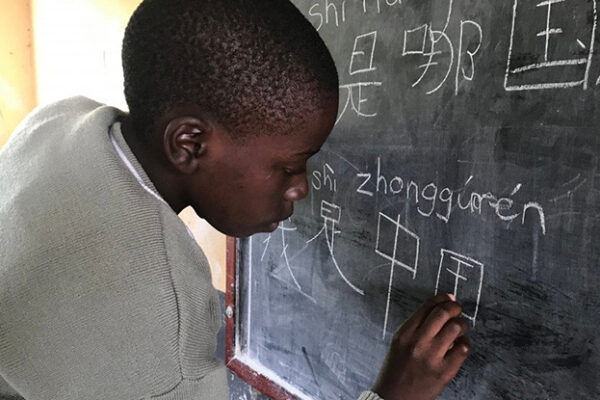 shì nǎ
是 哪 国
shì zhongguórén
我 是 中 国